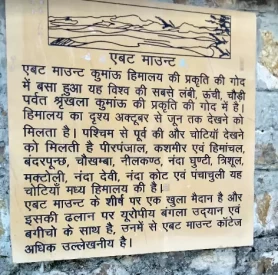 एबट माउन्ट
एबट माउन्ट कुमांऊ हिमालय की प्रकृति की गोद
में बसा हुआ यह विश्व की सबसे लंबी, ऊंची, चौड़ी
पर्वत श्रृंखला कुमांऊ की प्रकृति की गोद में है।
हिमालय का दृश्य अक्टूबर से जून तक देखने को
मिलता है। पश्चिम से पूर्व की और चोटियों देखने
को मिलती है पीरपंजाल, कशमीर एवं हिमांचल,
बंदरपून्छ, चौखम्बा, नीलकण्ठ, नंदा घुण्टी, त्रिशूल,
मक्टोली, नंदा देवी, नंदा कोट एवं पंचाचुली यह
चोटियाँ मध्य हिमालय की है।
एबट माउन्ट के शीर्ष पर एक खुला मैदान है और
इसकी ढलान पर यूरोपीय बंगला उद्यान एवं
बगीचो के साथ है, उनमें से एबट माउन्ट कॉटेज
अधिक उल्लेखनीय है।